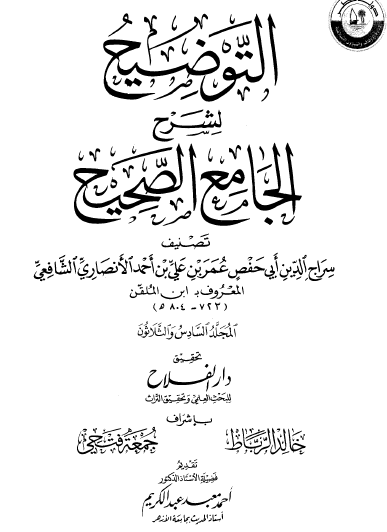 التَّوضِيحُ
لِشَرْحِ
الجَامِعِ الصَّحِيحِ
تَصْنِيف
سِرَاجِ الدِّينِ أَبِي حَفْصٍ عُمَرَ بْنِ عَلِيِّ بْنِ أَحْمَدَ الأَنْصَارِيِّ الشَّافِعِيِّ
المَعْرُوف بـ ابن المُلَقِّن
(٧٢٣ - ٨٠٤ هـ)
المُجَلَّدُ السَّادِسُ وَالثَّلَاثُون
تحقيق
دار الفلاح
للبحث العلمي وتحقيق التراث
بإشراف
خالد الرباط جمعة فتحي
تقديم
فضيلة الأستاذ الدكتور
أحمد معبد عبد الكريم
أستاذ الحديث بجامعة الأزهر